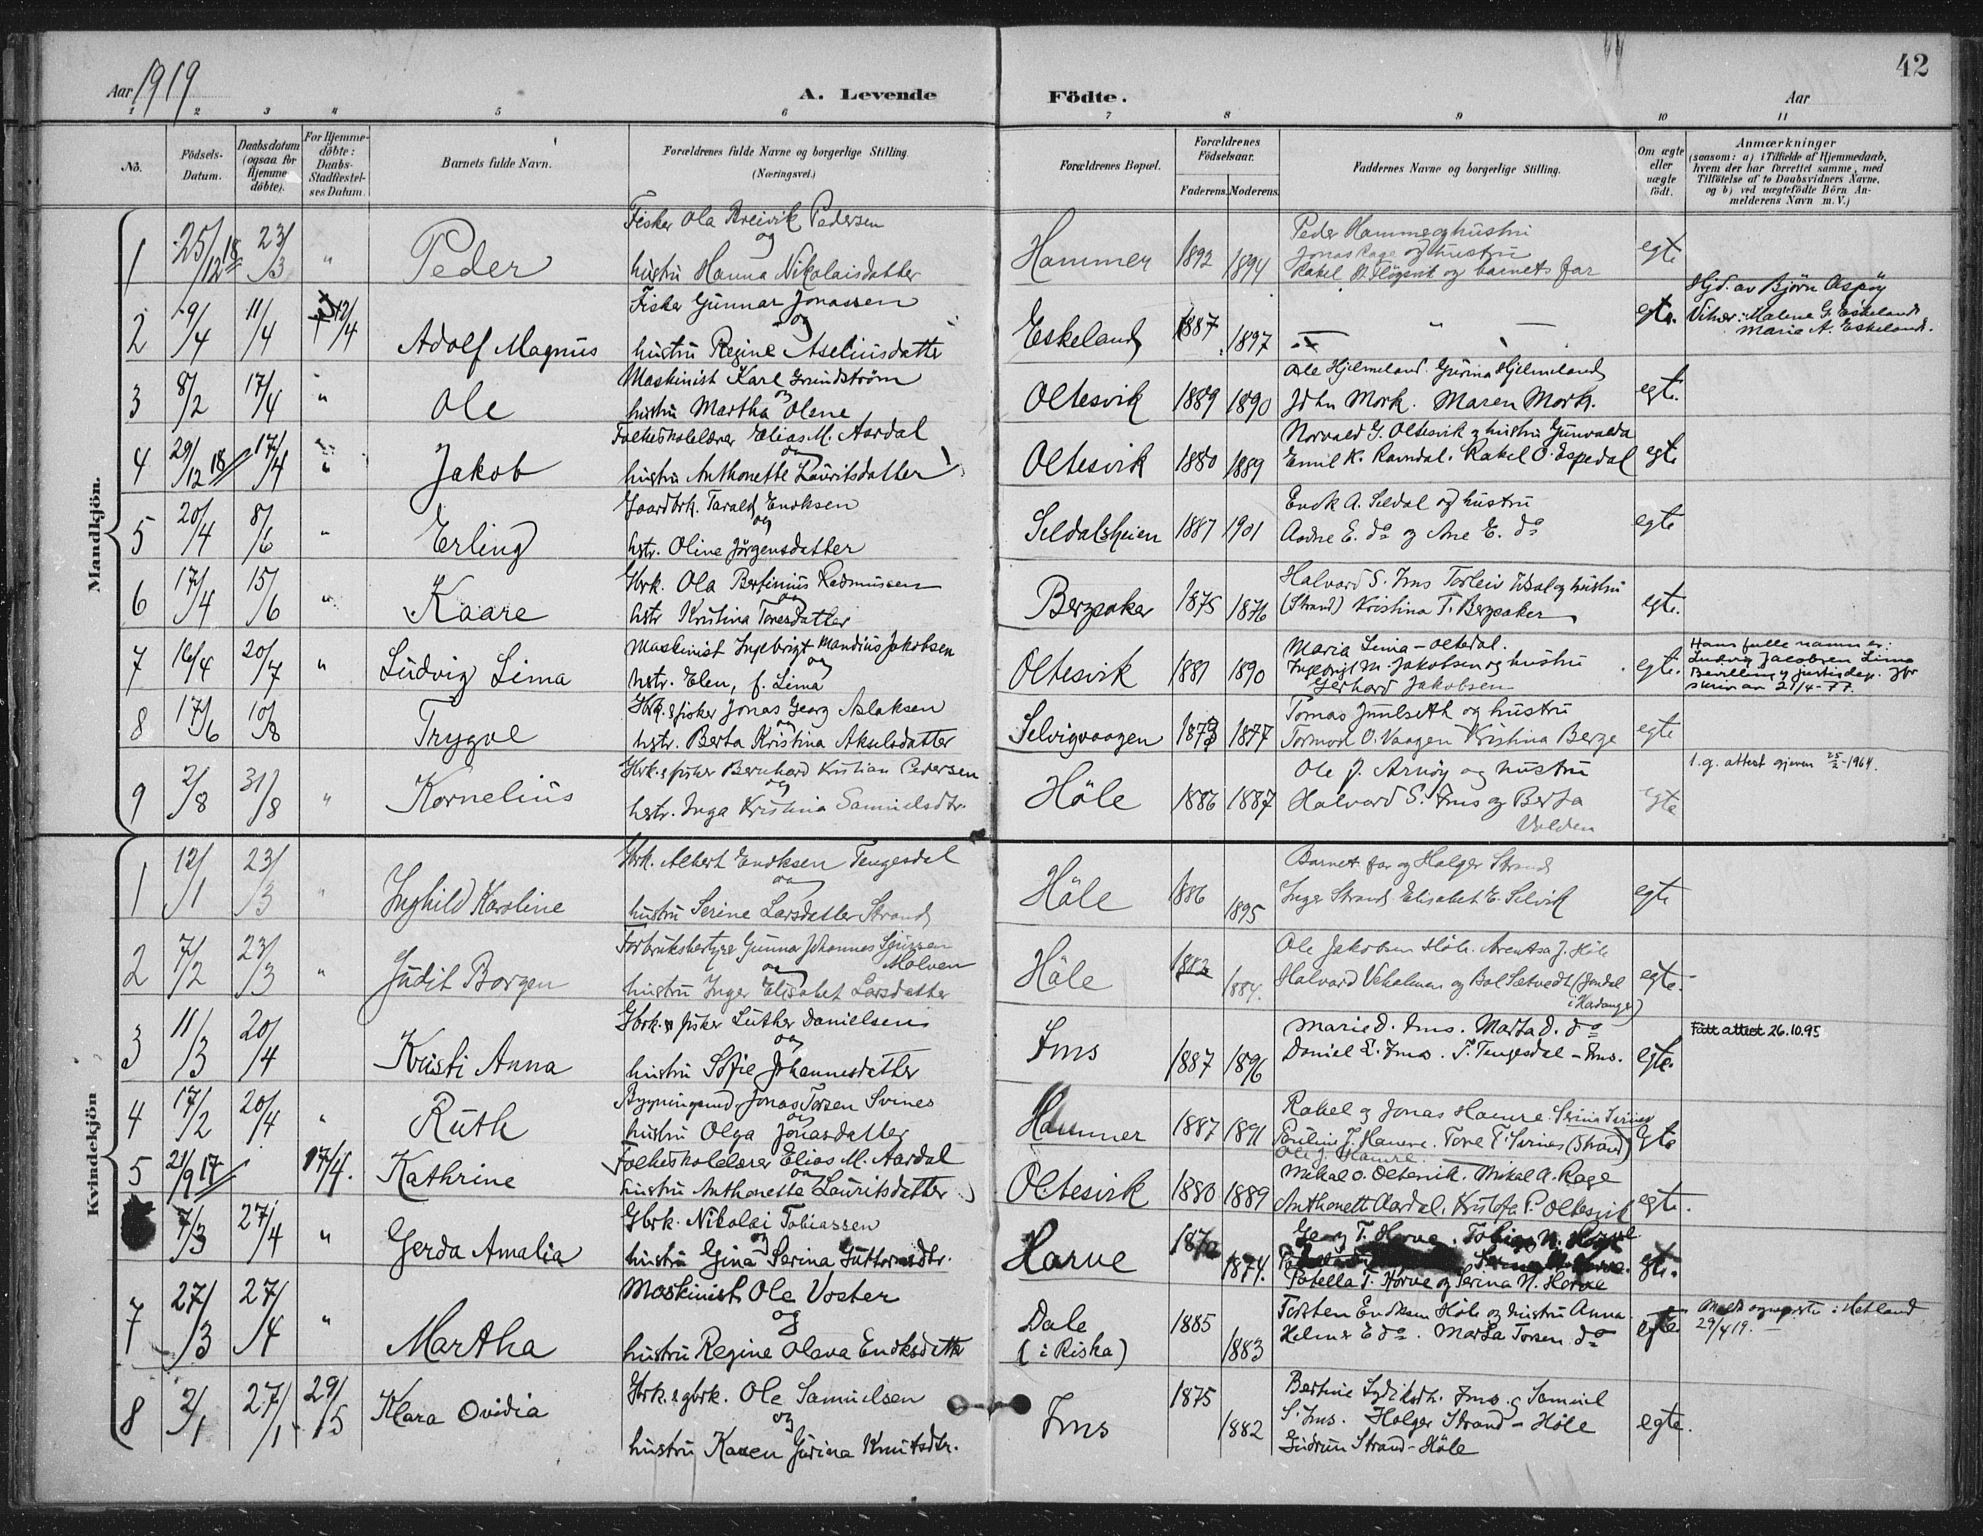 42
Aar 1919
A. Levende Födte.
Aar
1 2 3 4 5 6 7 8 9 10 11
No.
Födsels-Datum.
Daabsdatum (ogsaa for Hjemmedöbte).
For Hjemmedöbte: Daabs-Stadfæstelses Datum.
Barnets fulde Navn.
Forældrenes fulde Navne og borgerlige Stilling. (Næringsvei.)
Forældrenes Bopæl.
Forældrenes Födselsaar.
Faderens. Moderens.
Faddernes Navne og borgerlige Stilling.
Om ægte eller uægte födt.
Anmærkninger
(saasom: a) i Tilfælde af Hjemmedaab, hvem der har forrettet samme, med Tilföielse af to Daabsvidners Navne, og b) ved uægtefödte Börn Anmelderens Navn m. V.)
Mandkjön.
1 25/12 18 23/3 " Peder
Fisker Ola Breivik Pedersen
og
hustru Hanna Nikolaisdatter
Hammer 1892 1894
Peder Hamme og hustru
Jonas Rage og hustru
Rakel og barnets far
egte
2 9/4 11/4 12/4 Adolf Magnus
Fisker Gunnar Jonassen
og
hustru Regine Aseliusdatter
Eskeland 1887 1897 — " —
egte.
Hjd. av Björn Aspöy
Vitner: Malene G. Eskeland
Maria A. Eskeland.
3 8/2 17/4 " Ole
Maskinist Karl Grundström
og
hustru Martha Olene
Oltesvik 1889 1890
Ole Hjelmeland. Gurina Hjelmeland
John Mork. Maren Mork.
egte.
4 29/12 18 17/4 " Jakob
Folkeskolelærer Elias M. Aardal
og
hustru Anthonette Lauritsdatter
Oltesvik 1880 1889
Norvald G. Oltesvik og hustru Gunvalda
Emil K. Ravndal. Rakel O. Espedal
egte
5 20/4 8/6 " Erling
Gaardbrk. Tarald Enoksen
og
hstr. Oline Jörgensdatter
Seldalsheien 1887 1901
Enok A. Seldal og hustru
Aadne E. do og Ane E. do
egte
6 17/4 15/6 " Kaare
Gbrk. Ola Bertinius Rasmussen
og
hstr Kristina Tonesdatter
Bergsaker 1875 1876
Halvard S. Ims Torleiv Idsal og hustru
(Strand) Kristina T. Bergsaker
egte.
7 16/4 20/7 " Ludvig Lima
Maskinist Ingebrigt Mandius Jakobsen
og
hstr. Elen, f. Lima
Oltesvik 1881 1890
Maria Lima-Oltedal.
Ingebrigt M. Jakobsen og hustru
Gerhard Jakobsen
egte.
Hans fulle namn er:
Ludvig Jacobsen Lima
Bevilling justisdep. jfr
skriv av 21/4-77.
8 17/6 10/8 Trygve
Gbrk. & fisker Jonas Georg Aslaksen
og
hstr. Berta Kristina Akselsdatter
Selvigvaagen 1873 1877
Tomas Juulseth og hustru
Tormod O. Vaagen Kristina Berge
egte
9 2/8 31/8 " Kornelius
Gbrk. & fisker Bernhard Kristian Pedersen
og
hstr. Inga Kristina Samuelsdtr.
Höle 1886 1887
Ole J. Arnöy og hustru
Halvard S. Ims og Berta
Volden
egte
1. g. attest gjeven 25/2-1964.
Kvindekjön
1 12/1 23/3 " Inghild Karoline
Gbrk. Albert Enoksen Tengesdal
og
hustru Serine Larsdatter Strand
Höle 1886 1895
Barnets far og Holger Strand
Inger Strand Elisabet E. Selvik
egte
2 7/2 23/3 " Judit Borgen
Forbruksbestyrer Gunnar Johannes Sjursen
Molven
og
hustru Inger Elisabet Larsdatter
Höle 1882 1884.
Ole Jakobsen Höle. Arentsa J. Höle
Halvard Veholmen og Bol Sætvedt (Jondal
i Hardanger)
egte.
3 11/3 20/4 Kristi Anna
Gbrk. & fisker Luther Danielsen
og
hustru Sofie Johannesdatter
Ims 1887 1896
Marie D. Ims. Marta D. do
Daniel E. Ims. T. Tengesdal - Ims.
egte.
Fått attest 26.10.95
4 17/2 20/4 " Ruth
Bygningsmd. Jonas Torsen Svines
og
hustru Olga Jonasdatter
Hammer 1887 1891
Rakel og Jonas Hamre. Serina Svines
Pauline J. Hamre. Tore T. Svines (Strand)
Ole J. Hamre.
egte
5 21/9 17 17/4. Kathrine
Folkeskolelærer Elias M. Aardal
og
hustru Anthonette Lauritsdatter
Oltesvik 1880 1889
Mikal O. Oltesvik. Mikal A. Rage
Anthonett Aardal. Kristofa P. Oltesvik
egte.
7/3 27/4 " Gerda Amalia
Gbrk. Nikolai Tobiassen
og
hustru Gina Serina Guttormsdtr.
Horve 1872 1874.
Georg T. Horve. Tobias N. Horve
Potella T. Horve og Serina N. Horve
egte.
7 27/3 27/4 " Martha
Maskinist Ole Voster
og
hustru Regine Olava Enoksdatter
Dale
(i Riska)
1885 1883
Torsten Enoksen Höle og hustru Anna.
Helmer E do. Marta Torsen do
egte
Meldt og i Hetland
29/4 19.
8 2/1 27/1 29/5 Klara Ovidia
Gbrk. & gbrk. Ole Samuelsen
og
hustru Karen Gurina Knutsdtr.
Ims 1875 1882
Bertine Ims og Samuel
S. Ims. Holger Strand - Höle
Gudrun Strand-Höle
egte.